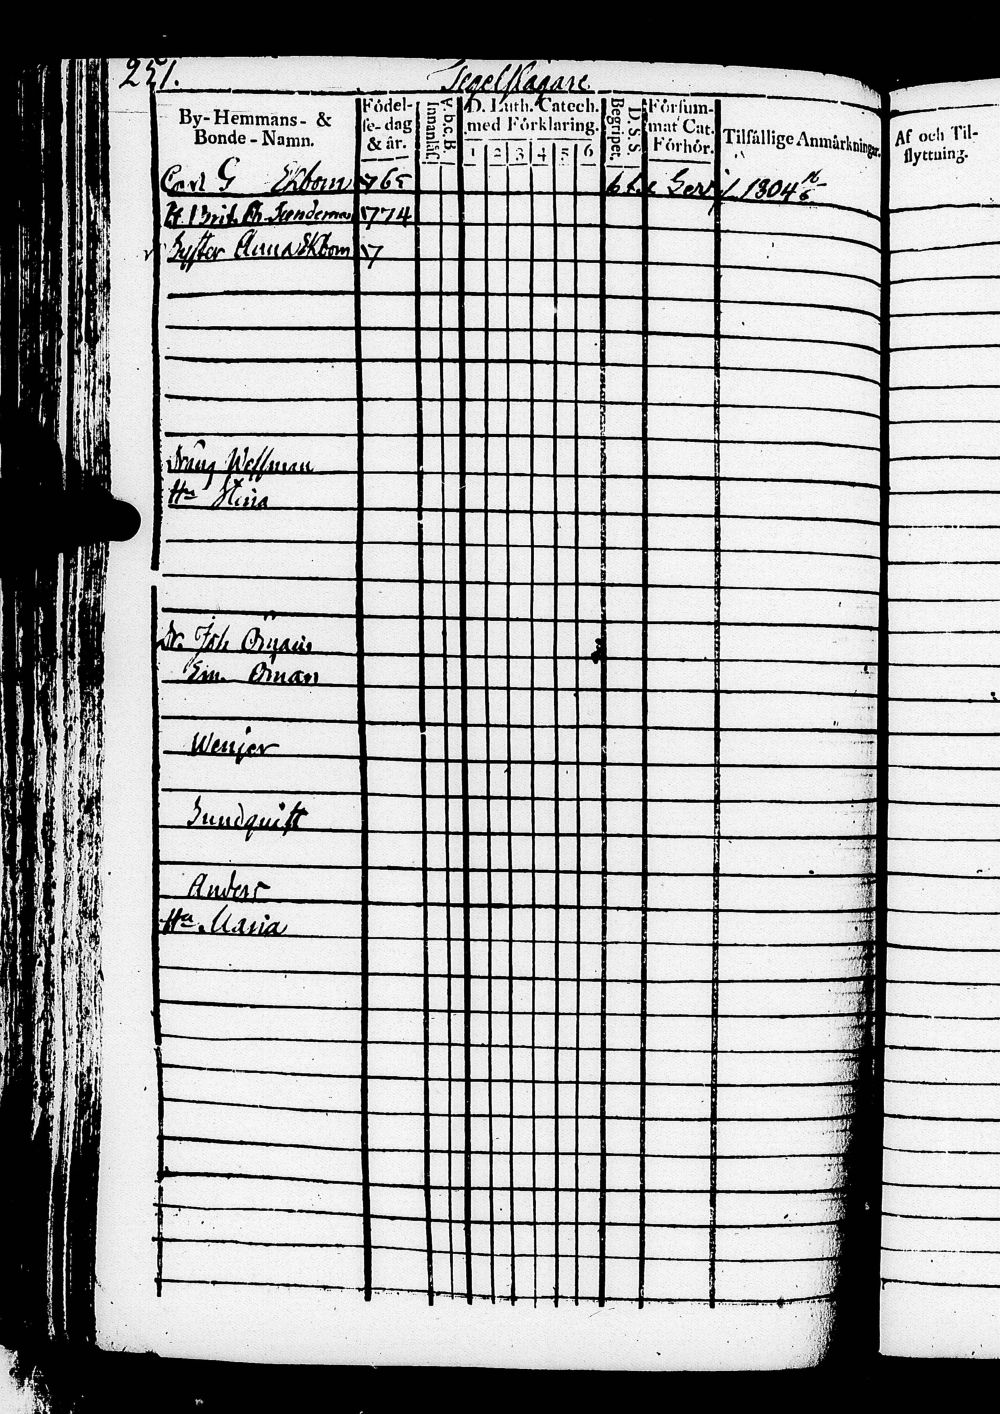 251.
By-Hemmans- &
Bonde-Namn.
Födel-
se-dag
& år.
Innantil.
A.b.c.B.
D. Luth. Catech.
med Förklaring.
1 2 3 4 5 6
Begripet.
D. S. S.
Försum-
mat Cat.
Förhör.
Tilfällige Anmärkningar.
Af och Til-
flyttning.
Carl G Ekbom 765
H. Brit. Ch. 774
Syster Anna Ekbom 7
Dräng Wessman
Hu Stina
Dr. Joh Öman
Em. Öman
Sundquist
Anders
Hu Maria